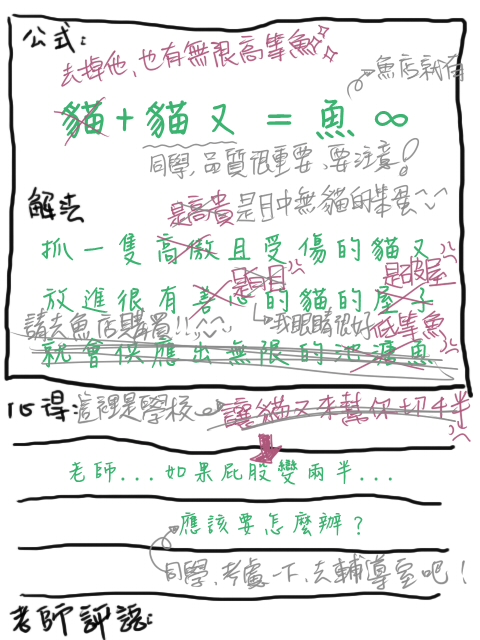 公式:
去掉他,也有無限高等魚
魚店就有
貓+貓又=魚∞
同學,品質很重要,要注意!
解法
是高貴
是目中無貓的笨蛋
抓一隻高傲且受傷的貓又
是盲目
是破屋
放進很有善心的貓的屋子
請去魚店購買!!
我眼睛很好
低等魚
就會供應出無限的池塘魚
心得:
這裡是學校
讓貓又來幫你切4半
老師...如果屁股變兩半...
應該要怎麼辦?
同學,考慮一下,去輔導室吧!
老師評語: